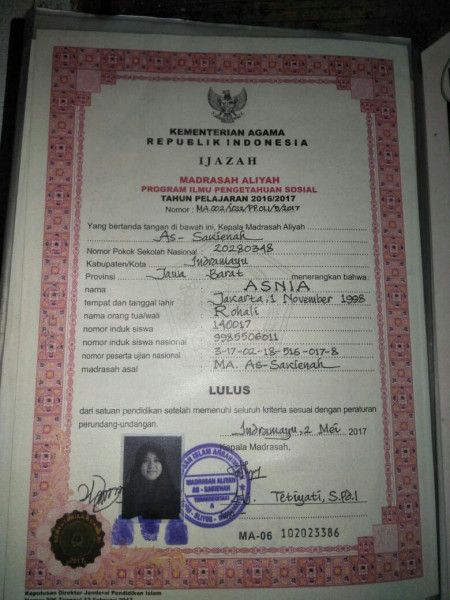 KEMENTERIAN AGAMA
REPUBLIK INDONESIA
IJAZAH
MADRASAH ALIYAH
PROGRAM ILMU PENGETAHUAN SOSIAL
TAHUN PELAJARAN 2016/2017
Nomor : MA.002/
Yang bertanda tangan di bawah ini, Kepala Madrasah Aliyah
As-Sakienah
Nomor Pokok Sekolah Nasional 20280348
Kabupaten/Kota Indramayu
Provinsi Jawa Barat menerangkan bahwa :
nama ASNIA
tempat dan tanggal lahir Jakarta, 1 November 1998
nama orang tua/wali Rohali
nomor induk siswa 140017
nomor induk siswa nasional 9985506011
nomor peserta ujian nasional 3-17-02-18-516-017-8
madrasah asal MA. As-Sakienah
LULUS
dari satuan pendidikan setelah memenuhi seluruh kriteria sesuai dengan peraturan
perundang-undangan.
Indramayu, 2 Mei 2017
Kepala Madrasah,
MADRASAH ALIYAH
AS - SAKIENAH
Tetiyati, S.Pd.I
MA-06 102023386
Keputusan Direktur Jenderal Pendidikan Islam